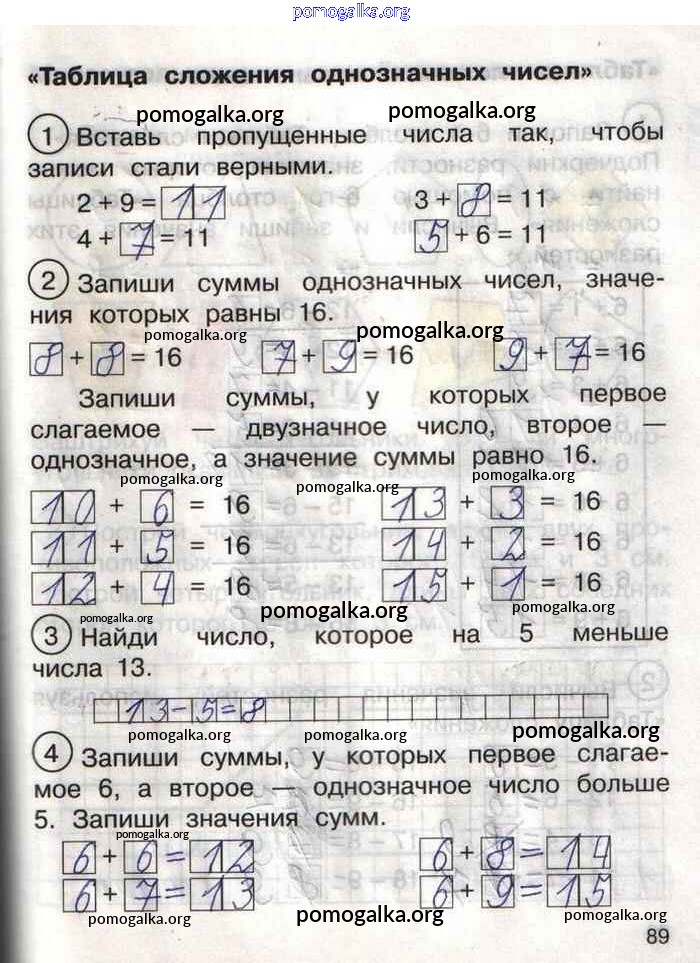 pomogalka.org
«Таблица сложения однозначных чисел»
pomogalka.org pomogalka.org
1 Вставь пропущенные числа так, чтобы
записи стали верными.
pomogalka.org
2 + 9 = 11 3 + 8 = 11
4 + 7 = 11 5 + 6 = 11
2 Запиши суммы однозначных чисел, значе-
ния которых равны 16.
pomogalka.org pomogalka.org
8 + 8 = 16 7 + 9 = 16 9 + 7 = 16
Запиши суммы, у которых первое
слагаемое — двузначное число, второе —
однозначное, а значение суммы равно 16.
pomogalka.org pomogalka.org pomogalka.org
10 + 6 = 16 13 + 3 = 16
11 + 5 = 16 14 + 2 = 16
12 + 4 = 16 15 + 1 = 16
pomogalka.org pomogalka.org pomogalka.org
3 Найди число, которое на 5 меньше
числа 13.
13-5=8
pomogalka.org pomogalka.org pomogalka.org
4 Запиши суммы, у которых первое слагае-
мое 6, а второе — однозначное число больше
5. Запиши значения сумм.
pomogalka.org
6 + 6 = 12 6 + 8 = 14
6 + 7 = 13 6 + 9 = 15
pomogalka.org pomogalka.org pomogalka.org
89